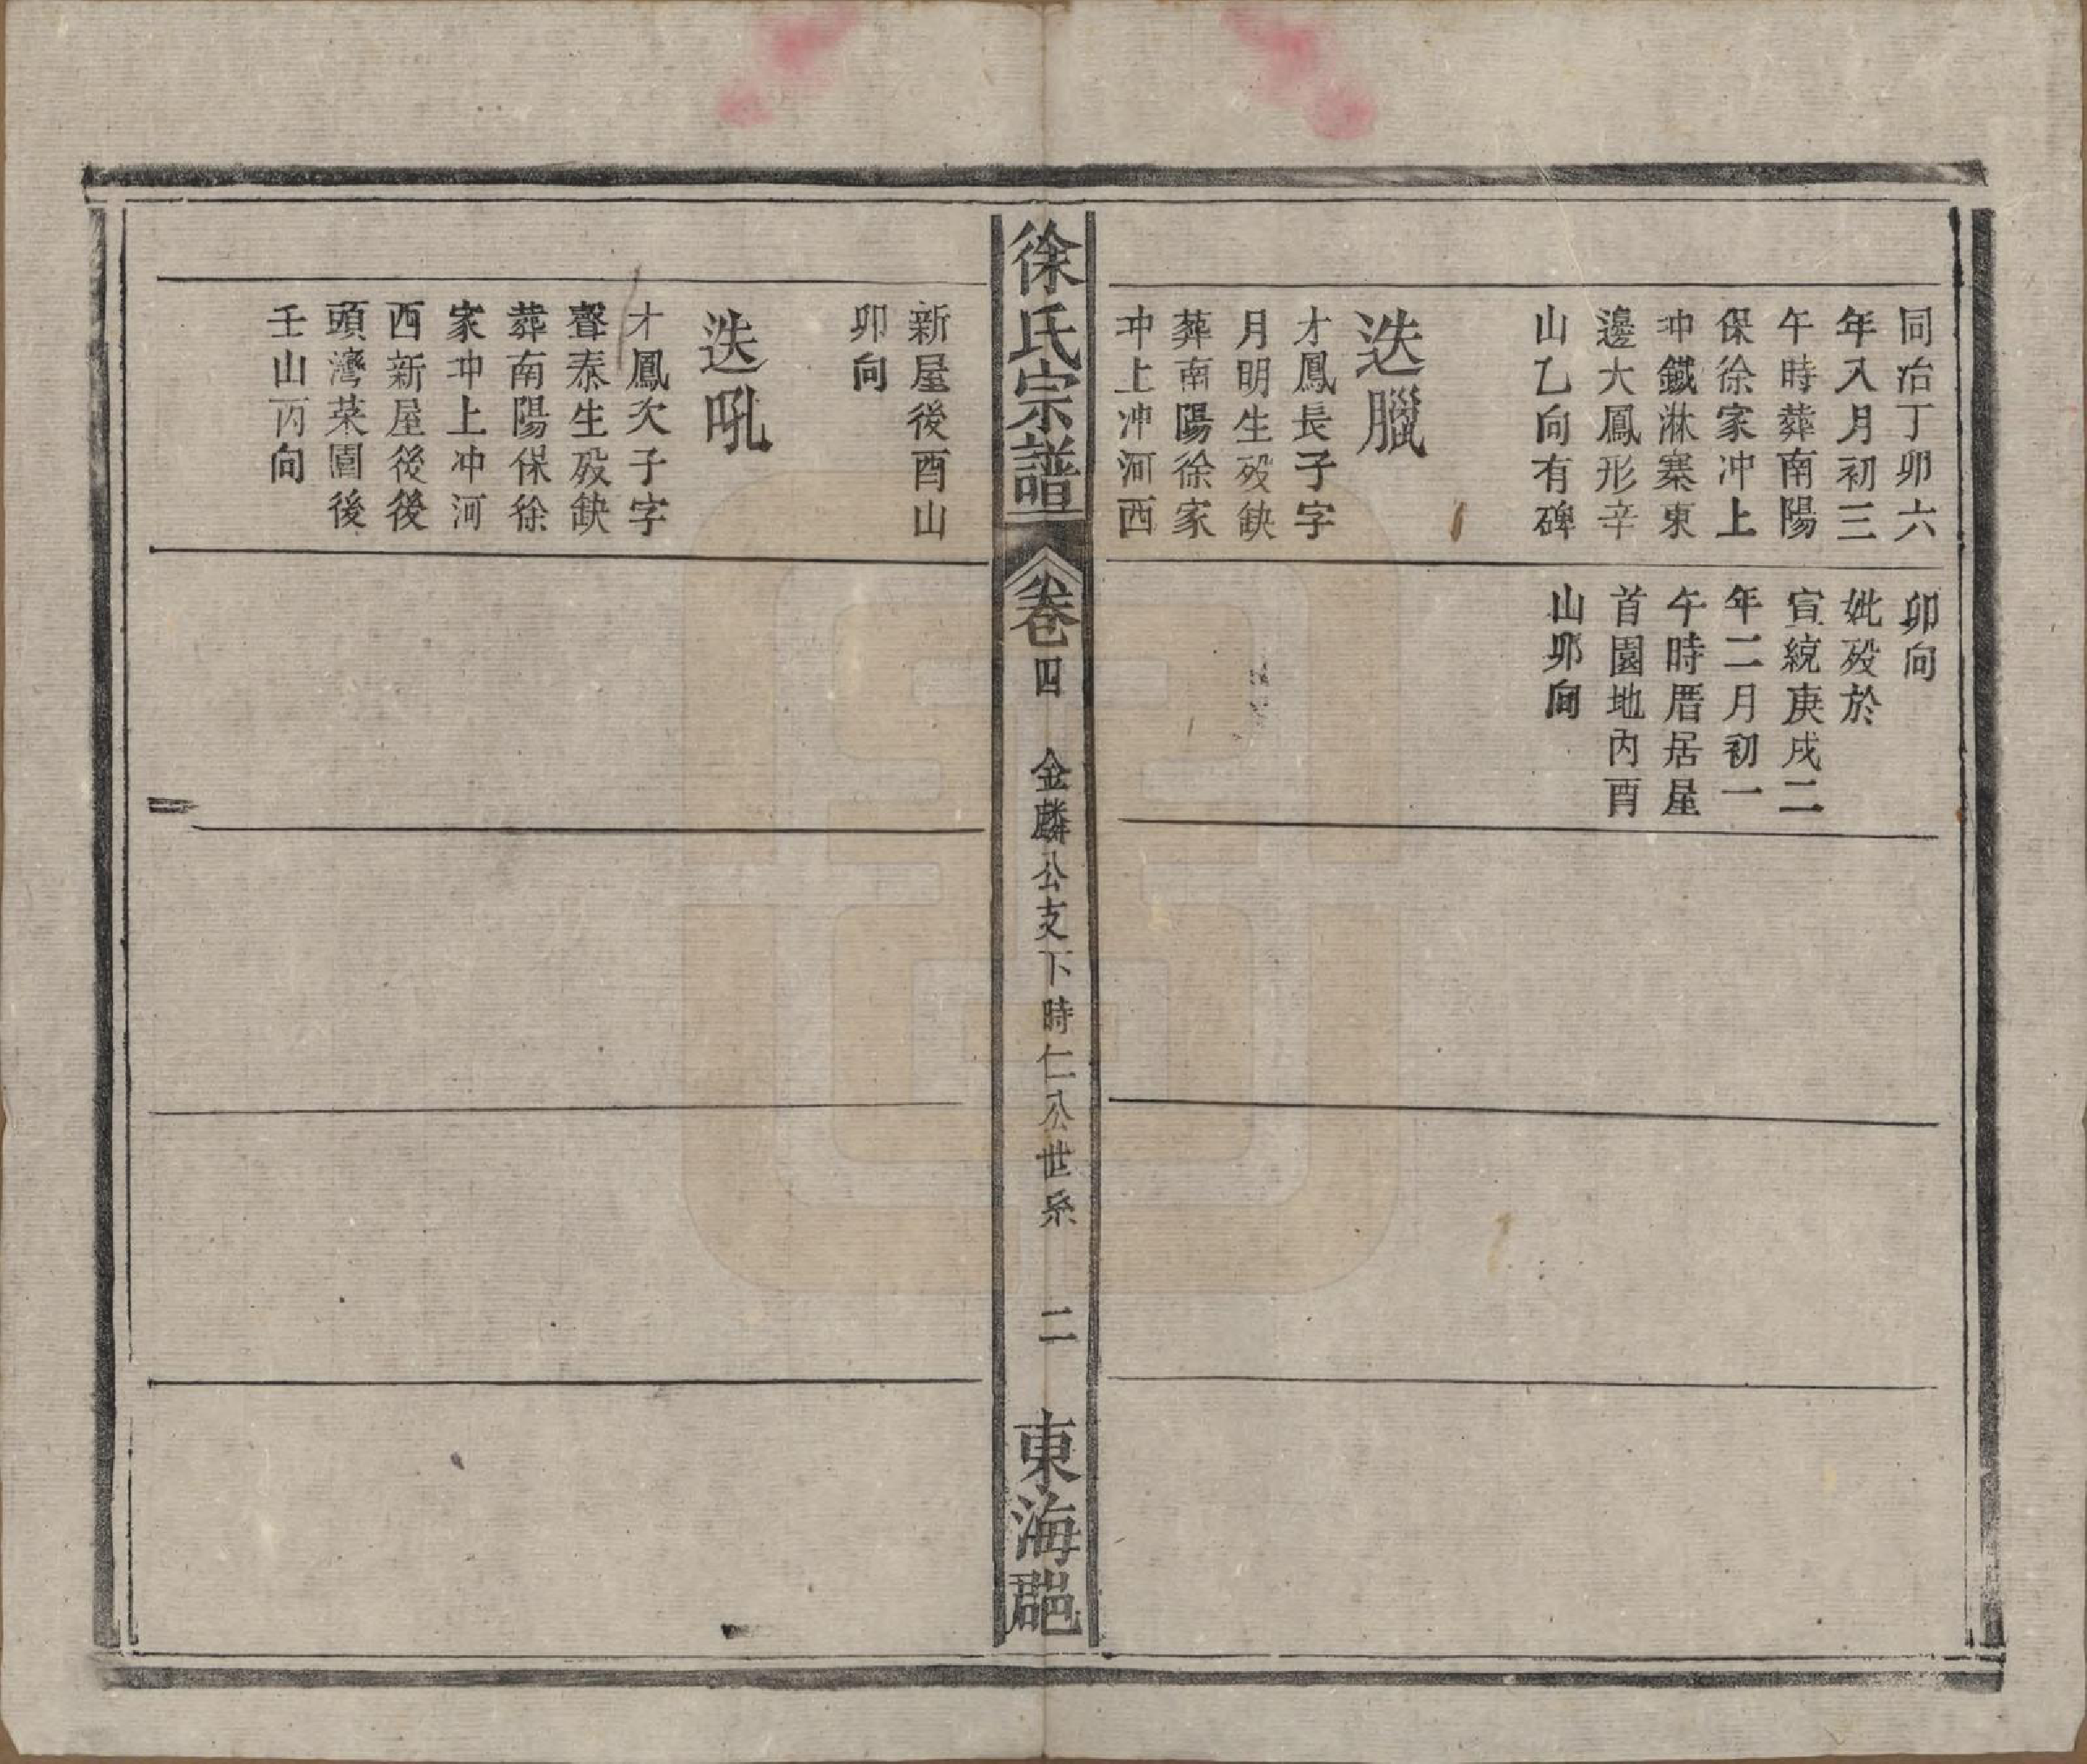 同治丁卯六
年入月初三
午時葬南陽
保徐家冲上
冲鐵淋寨東
邊大鳳形辛
山乙向有碑
迭臘
才鳳長子字
月明生歿缺
葬南陽徐家
冲上冲河西
卯向
妣歿於
宣統庚戌二
年二月初一
午時厝居屋
首園地內酉
山卯向
徐氏宗譜
卷四
金麟公支下時仁公世系
二
東海郡
新屋後酉山
卯向
迭吼
才鳳次子字
聲泰生歿缺
葬南陽保徐
家冲上冲河
西新屋後後
頭灣菜園後
壬山丙向